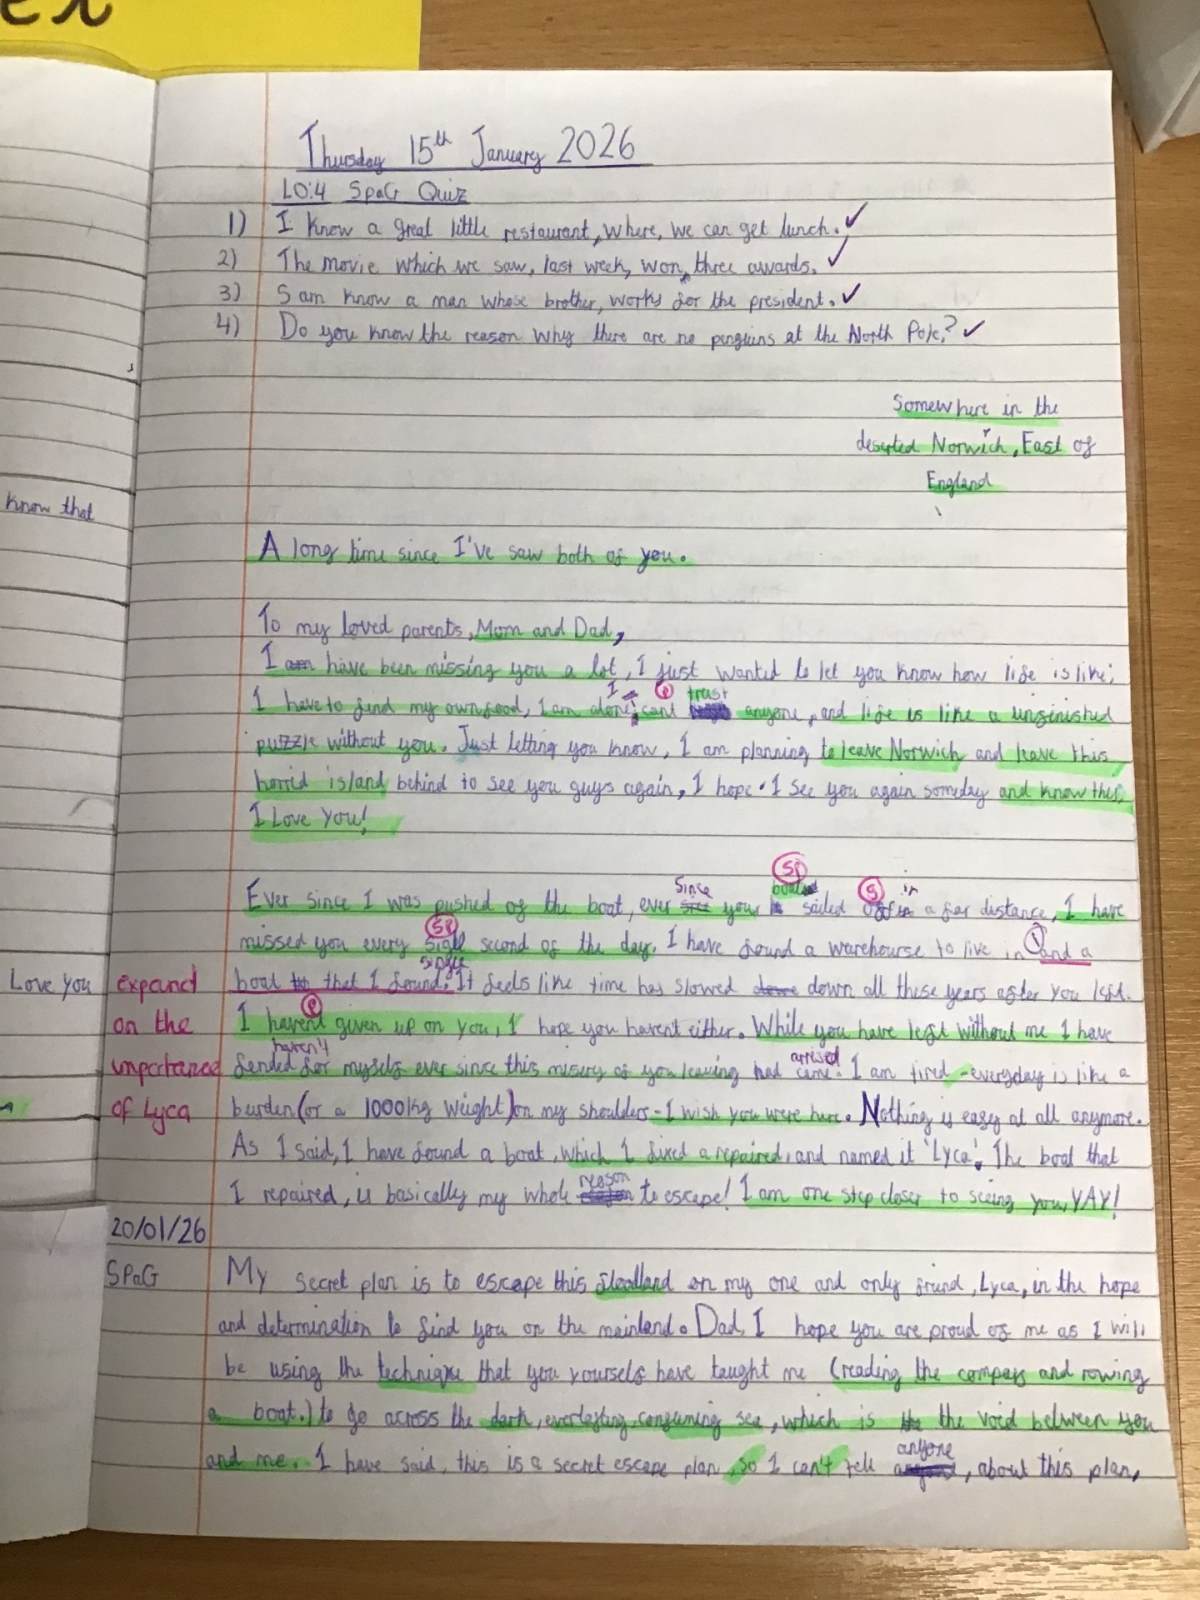 ex
Thursday 15th January 2026
LO:4 SPaG Quiz
1) I know a great little restaurant, where, we can get lunch. ✓
2) The movie which we saw, last week, won, three awards. ✓
3) Sam know a man whose brother, works for the president. ✓
4) Do you know the reason why there are no penguins at the North Pole? ✓
Somewhere in the
deserted Norwich, East of
England
know that
A long time since I've saw both of you.
To my loved parents, Mom and Dad,
I am have been missing you a lot, I just wanted to let you know how life is like;
I have to find my own food, I am alone, I cant trust anyone, and life is like a unfinished
puzzle without you. Just letting you know, I am planning to leave Norwich and leave this
horrid island behind to see you guys again, I hope. I see you again someday and know this,
I Love You!
Ever since I was pushed of the boat, ever since your boat sailed in a far distance, I have
missed you every single second of the day. I have found a warehourse to live in and a
Love you
expand
boat that I found. It feels like time has slowed down all these years after you left.
on the
I havent given up on you, I hope you havent either. While you have left without me I have
haven't
importance
fended for myself ever since this misery of you leaving had arrived. I am tired - everyday is like a
of Lyca
burden (or a 1000kg weight) on my shoulders - I wish you were here. Nothing is easy at all anymore.
As I said, I have found a boat, which I fixed a repaired, and named it 'Lyca'. The boat that
I repaired, is basically my whole reason to escape! I am one step closer to seeing you, YAY!
20/01/26
SPaG
My secret plan is to escape this floodland on my one and only friend, Lyca, in the hope
and determination to find you on the mainland. Dad, I hope you are proud of me as I will
be using the technique that you yourselfs have taught me (reading the compass and rowing
a boat.) to go across the dark, everlasting, consuming sea, which is the void between you
and me. I have said, this is a secret escape plan, so I can't tell anyone, about this plan,